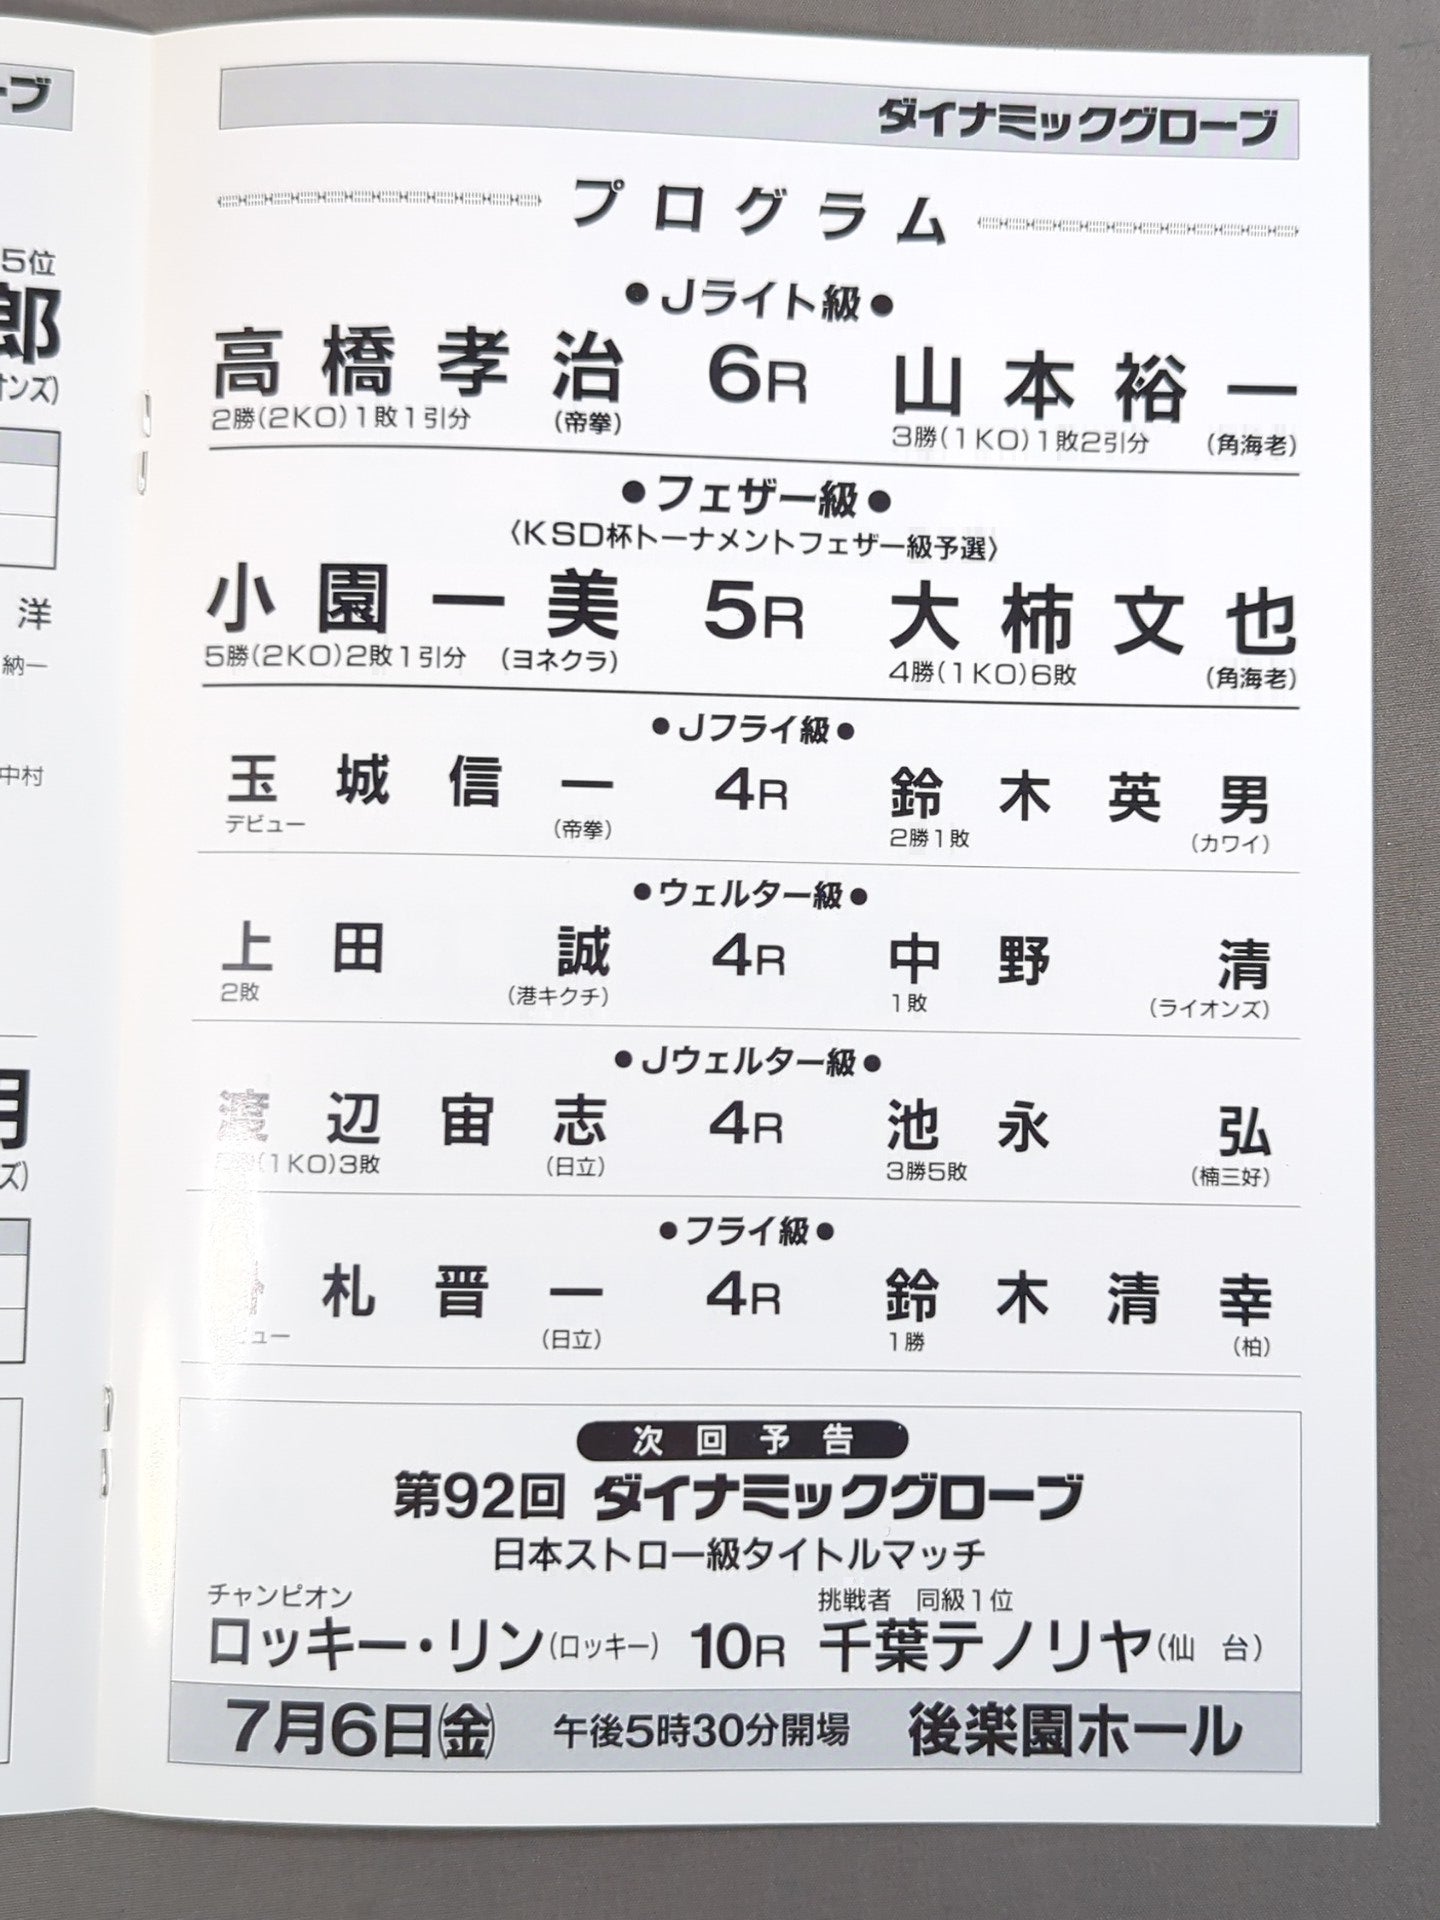 ーブ
5位
郎
オンズ)
洋
納一
中村
ズ)
ダイナミックグローブ
プログラム
●Jライト級●
高橋孝治 6R 山本裕一
2勝(2KO)1敗1引分 (帝拳) 3勝(1KO)1敗2引分 (角海老)
●フェザー級●
〈KSD杯トーナメントフェザー級予選〉
小園一美 5R 大柿文也
5勝(2KO)2敗1引分 (ヨネクラ) 4勝(1KO)6敗 (角海老)
●Jフライ級●
玉城信一 4R 鈴木英男
デビュー (帝拳) 2勝1敗 (カワイ)
●ウェルター級●
上田 誠 4R 中野 清
2敗 (港キクチ) 1敗 (ライオンズ)
●Jウェルター級●
渡辺宙志 4R 池永 弘
(1KO)3敗 (日立) 3勝5敗 (楠三好)
●フライ級●
札晋一 4R 鈴木清幸
ュー (日立) 1勝 (柏)
次回予告
第92回 ダイナミックグローブ
日本ストロー級タイトルマッチ
チャンピオン 挑戦者 同級1位
ロッキー・リン(ロッキー) 10R 千葉テノリヤ(仙台)
7月6日(金) 午後5時30分開場 後楽園ホール